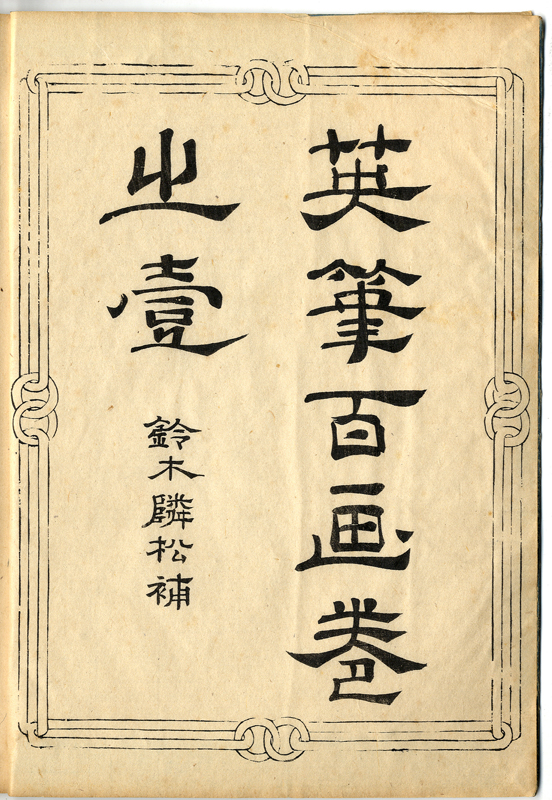 英筆百画巻
之壹
鈴木隣松補